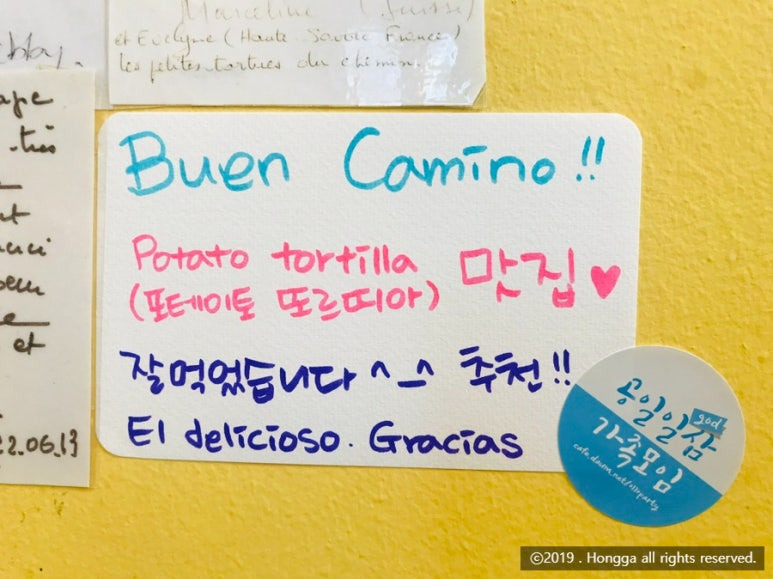 Marceline (Suisse)
et Evelyne (Haute Savoie France)
les petites tortues du chemin.
très
et
22.06.13
Buen Camino!!
Potato tortilla
(포테이토 또르띠아) 맛집♥
잘먹었습니다 ^_^ 추천!!
El delicioso. Gracias
god
공일일삼
가족모임
cafe.daum.net/011party
©2019 . Hongga all rights reserved.